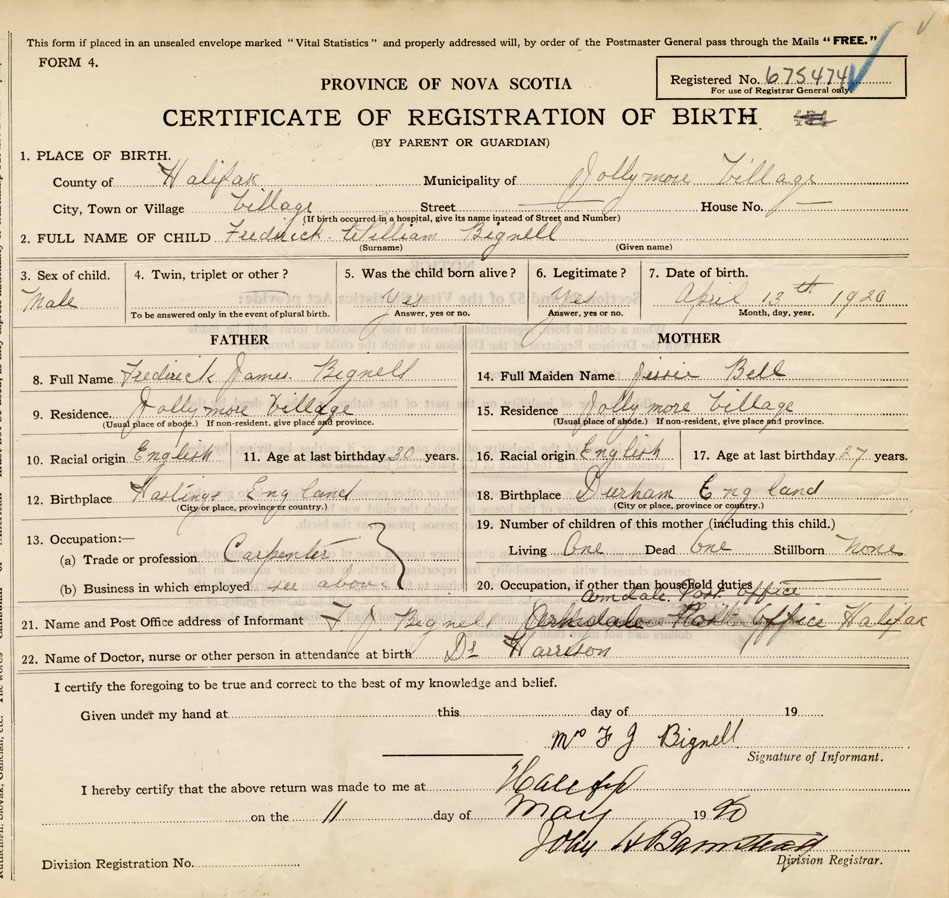 This form if placed in an unsealed envelope marked "Vital Statistics" and properly addressed will, by order of the Postmaster General pass through the Mails "FREE."
FORM 4.
Registered No. 675474
For use of Registrar General only.
PROVINCE OF NOVA SCOTIA
CERTIFICATE OF REGISTRATION OF BIRTH
(BY PARENT OR GUARDIAN)
1. PLACE OF BIRTH.
County of Halifax Municipality of Jollymore Village
City, Town or Village Village Street — House No. —
(If birth occurred in a hospital, give its name instead of Street and Number)
2. FULL NAME OF CHILD Frederick William Bignell
(Surname) (Given name)
3. Sex of child. 4. Twin, triplet or other? 5. Was the child born alive? 6. Legitimate? 7. Date of birth.
Male — Yes Yes April 13th 1920
To be answered only in the event of plural birth. Answer, yes or no. Answer, yes or no. Month, day, year.
FATHER MOTHER
8. Full Name Frederick James Bignell 14. Full Maiden Name Jessie Bell
9. Residence. Jollymore Village 15. Residence Jollymore Village
(Usual place of abode.) If non-resident, give place and province. (Usual place of abode.) If non-resident, give place and province.
10. Racial origin English 11. Age at last birthday 30 years. 16. Racial origin English 17. Age at last birthday 27 years.
12. Birthplace Hastings England 18. Birthplace Durham England
(City or place, province or country.) (City or place, province or country.)
13. Occupation:— 19. Number of children of this mother (including this child.)
(a) Trade or profession Carpenter Living One Dead One Stillborn None
(b) Business in which employed see above 20. Occupation, if other than household duties
Armdale Post Office
21. Name and Post Office address of Informant F J Bignell Office Halifax
22. Name of Doctor, nurse or other person in attendance at birth Dr Harrison
I certify the foregoing to be true and correct to the best of my knowledge and belief.
Given under my hand at this day of 19
Mrs F J Bignell
Signature of Informant.
I hereby certify that the above return was made to me at Halifax
on the 11 day of May 1920
John H Barnstead
Division Registration No. Division Registrar.